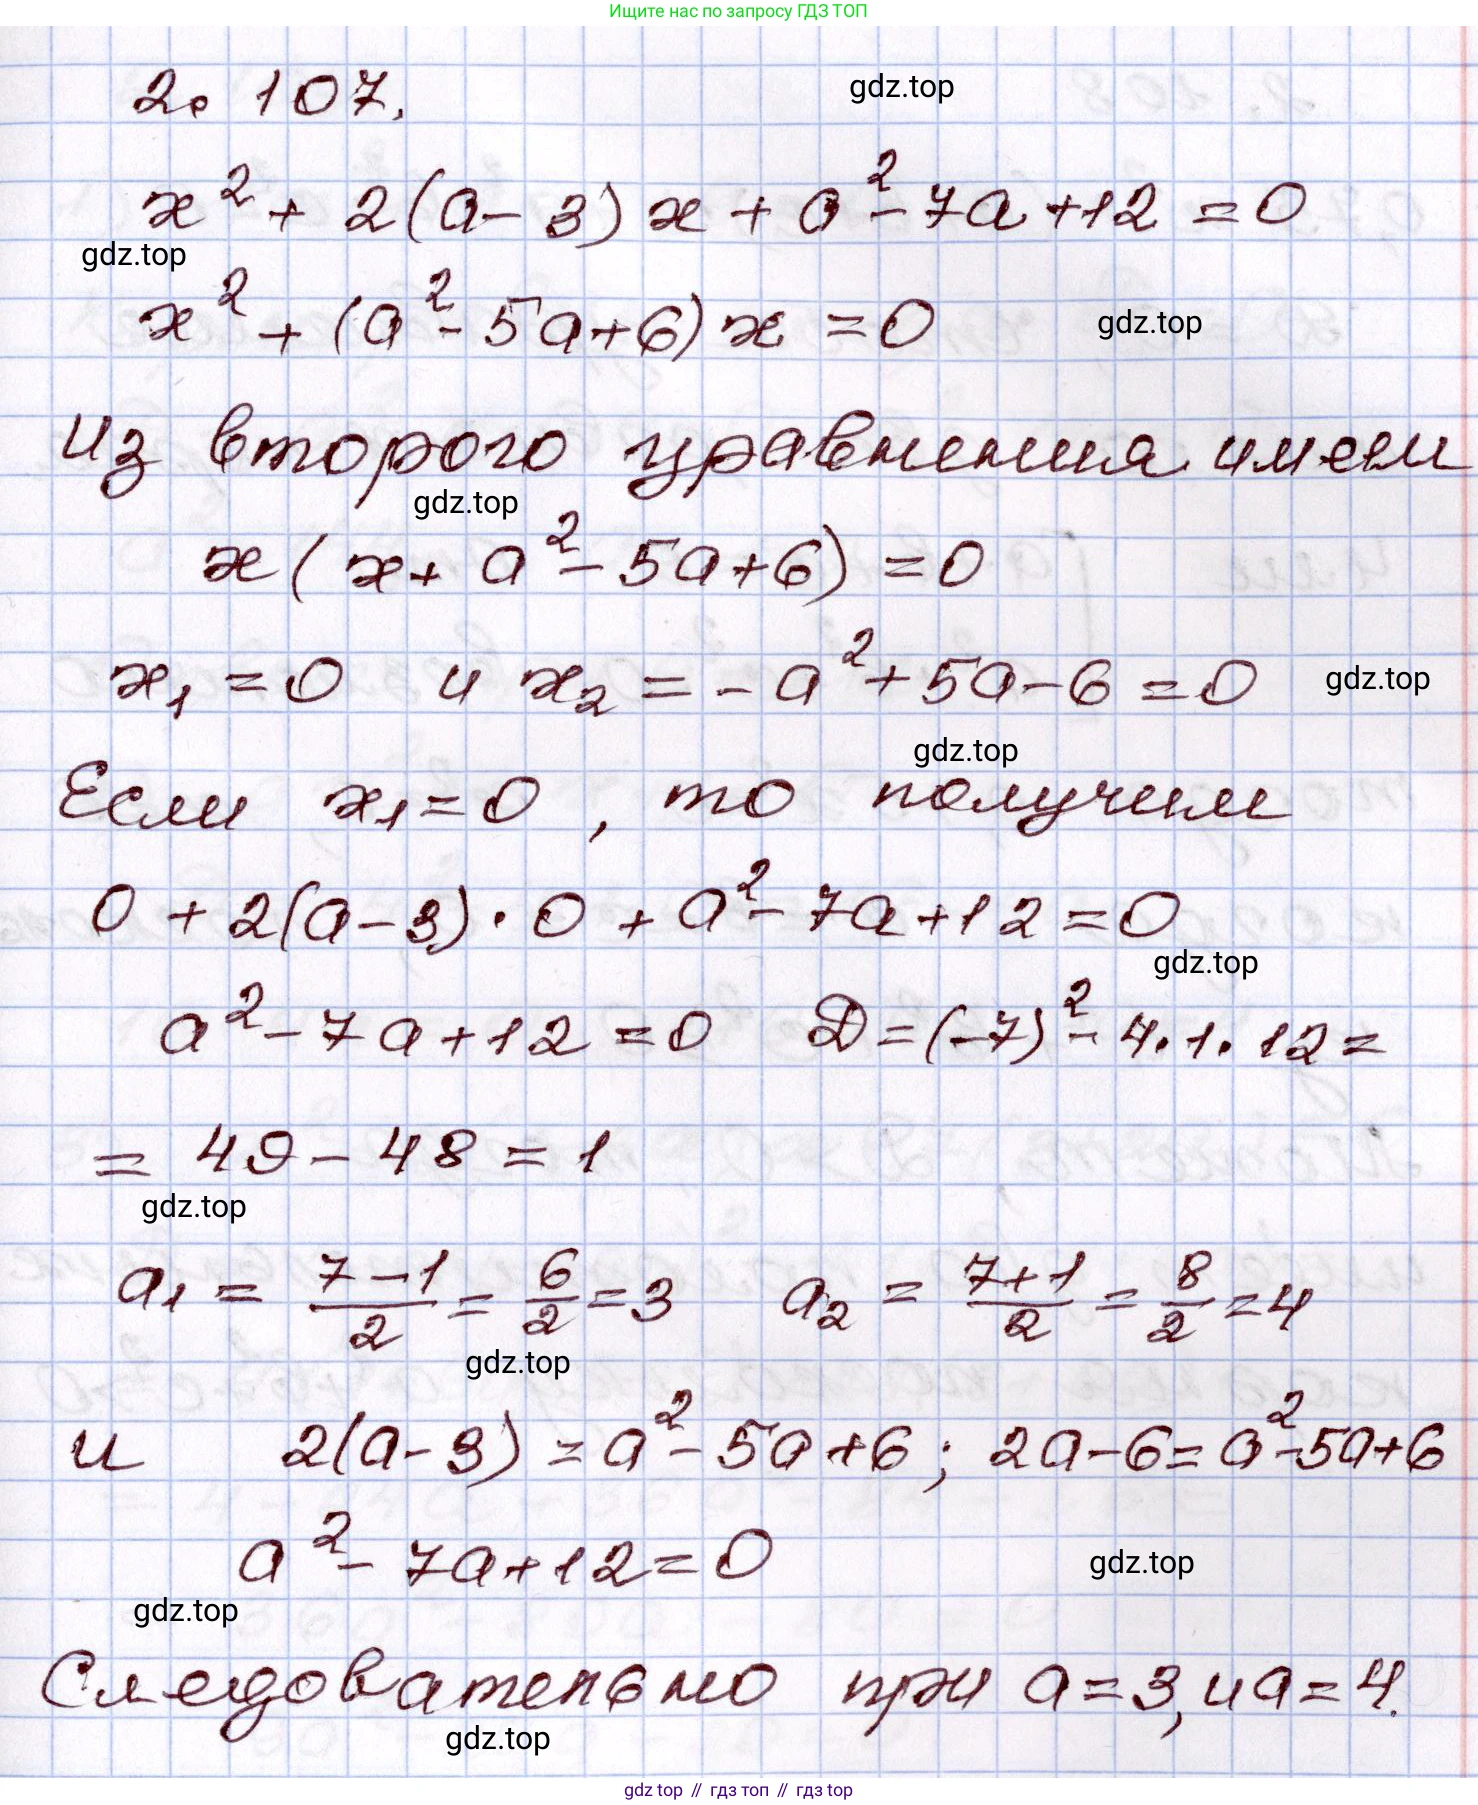 Ищите нас по запросу ГДЗ ТОП
2. 107.
gdz.top
x² + 2(a - 3)x + a² - 7a + 12 = 0
gdz.top
x² + (a² - 5a + 6)x = 0
gdz.top
Из второго уравнения имеем
gdz.top
x(x + a² - 5a + 6) = 0
x₁ = 0 и x₂ = -a² + 5a - 6 = 0
gdz.top
gdz.top
Если x₁ = 0, то получим
0 + 2(a - 3) · 0 + a² - 7a + 12 = 0
gdz.top
a² - 7a + 12 = 0 D = (-7)² - 4 · 1 · 12 =
= 49 - 48 = 1
gdz.top
a₁ = (7-1)/2 = 6/2 = 3 a₂ = (7+1)/2 = 8/2 = 4
gdz.top
и 2(a - 3) = a² - 5a + 6; 2a - 6 = a² - 5a + 6
a² - 7a + 12 = 0
gdz.top
gdz.top
Следовательно при a = 3, и a = 4.
gdz.top
gdz top // гдз топ // гдз top